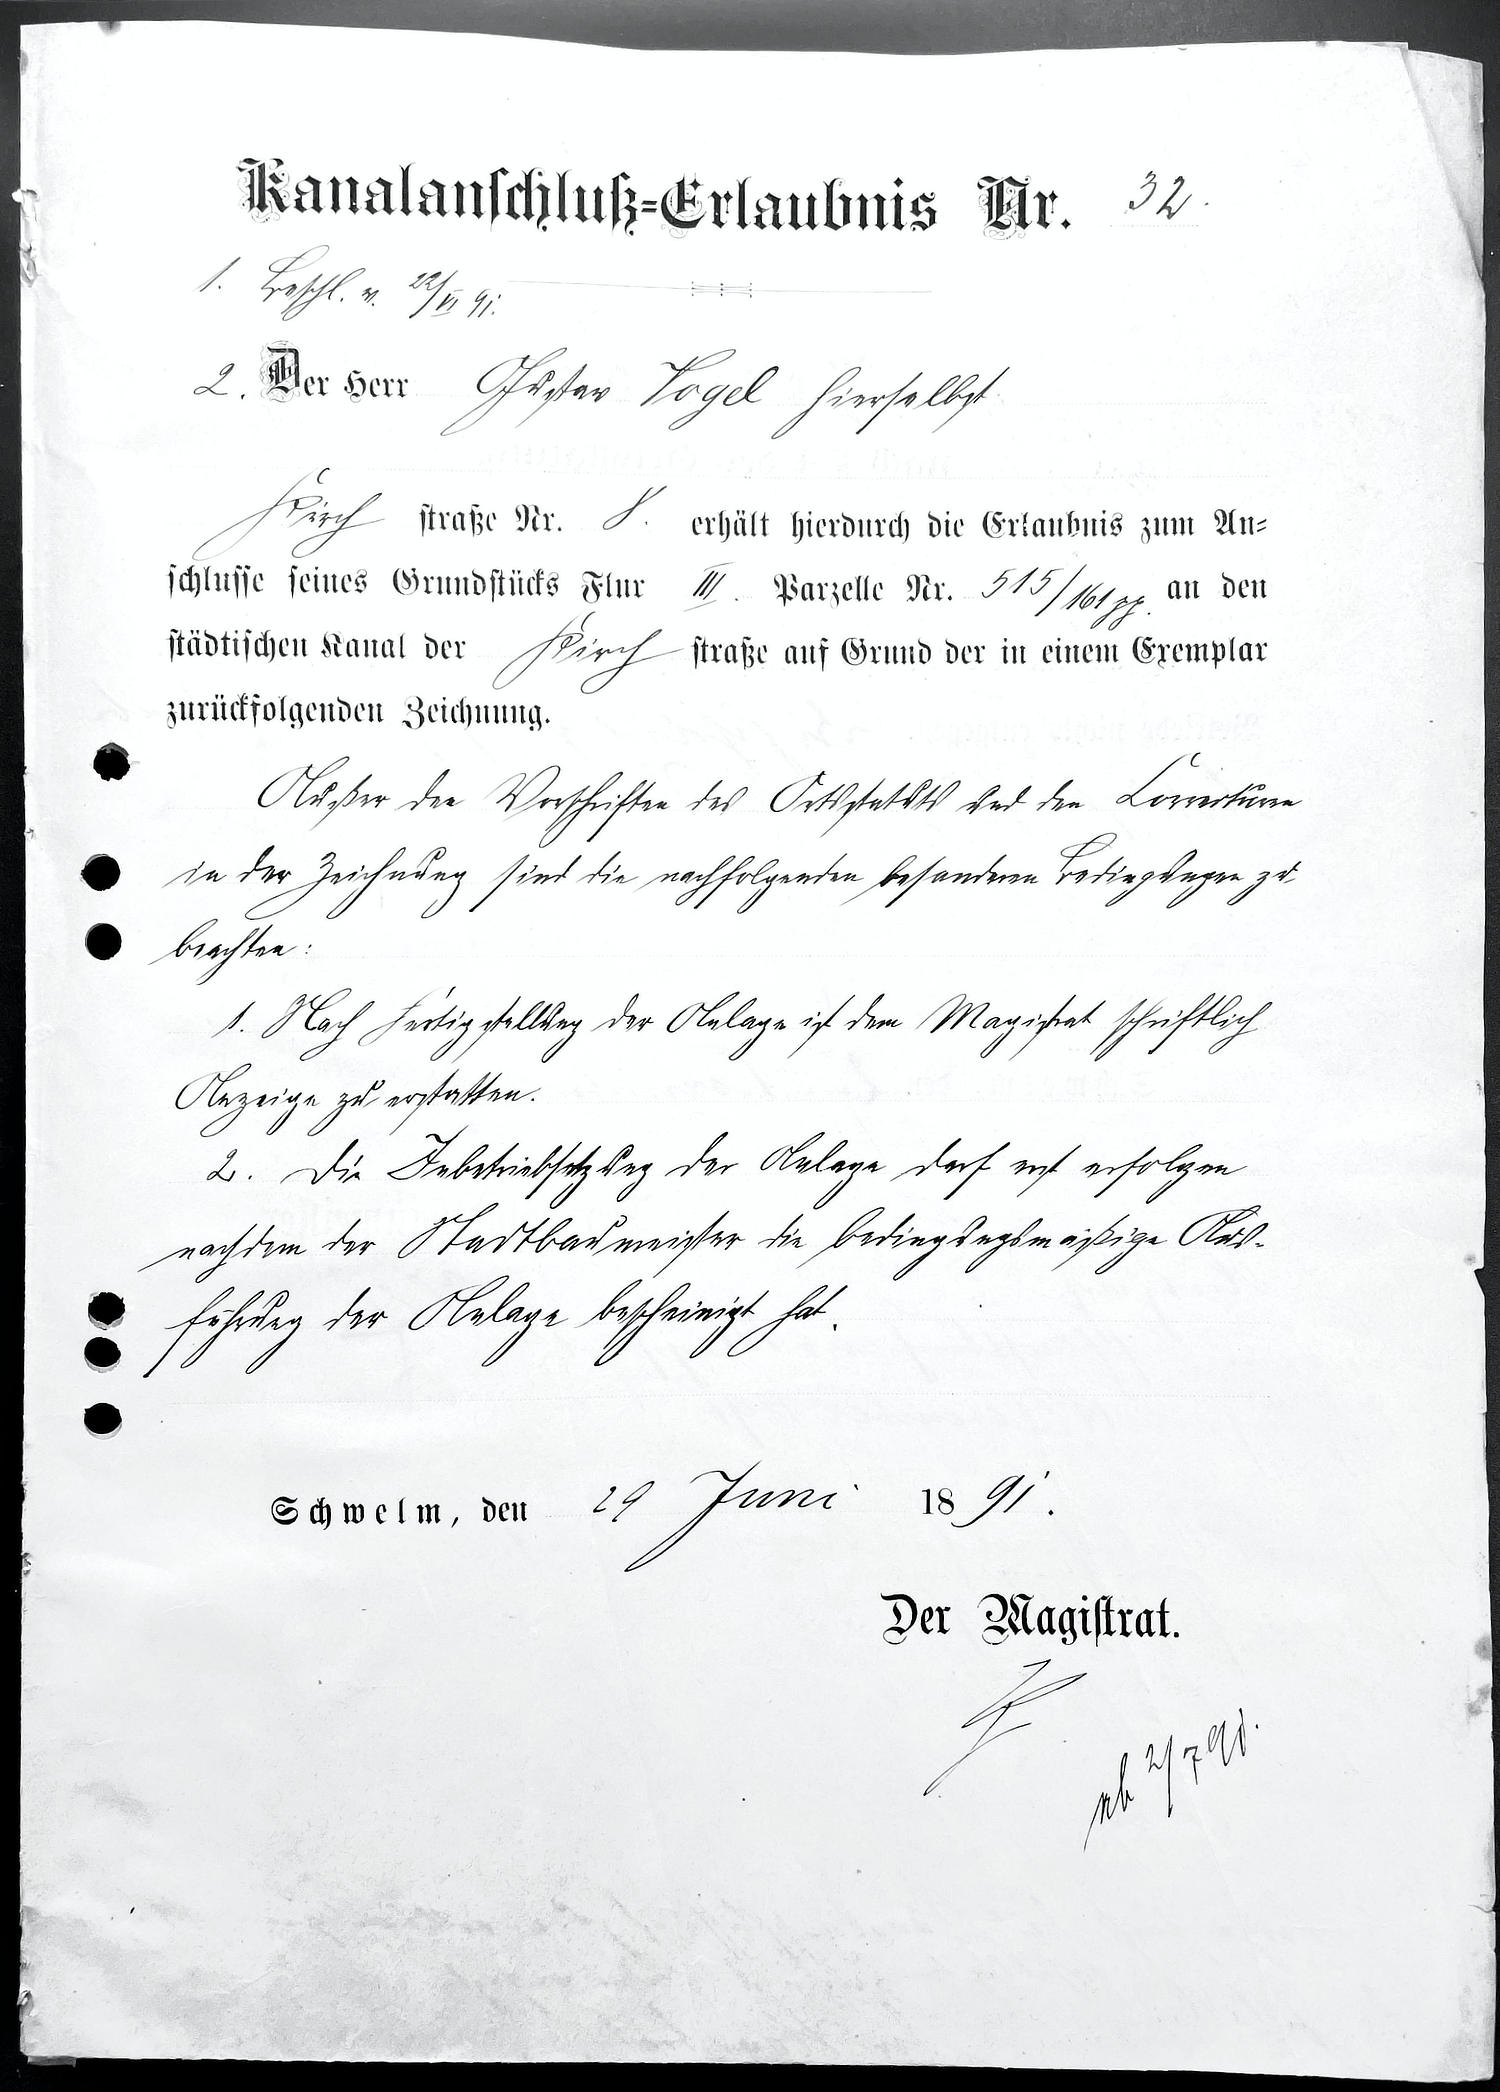 Kanalanschluß-Erlaubnis Nr. 32.
1. Beschl. v. 22/VI 91.
2. Der Herr Gustav Vogel hierselbst
Kirch straße Nr. 8. erhält hierdurch die Erlaubnis zum An-
schlusse seines Grundstücks Flur III. Parzelle Nr. 515/161 pp. an den
städtischen Kanal der Kirch straße auf Grund der in einem Exemplar
zurückfolgenden Zeichnung.
Außer den Vorschriften des Ortsstatuts und den Correcturen
in der Zeichnung sind die nachfolgenden besonderen Bedingungen zu
beachten:
1. Nach Fertigstellung der Anlage ist dem Magistrat schriftlich
Anzeige zu erstatten.
2. Die Inbetriebsetzung der Anlage darf erst erfolgen
nachdem der Stadtbaumeister die bedingungsmäßige Aus-
führung der Anlage bescheinigt hat.
Schwelm, den 29 Juni 1891.
Der Magistrat.
ab 2/7 91.